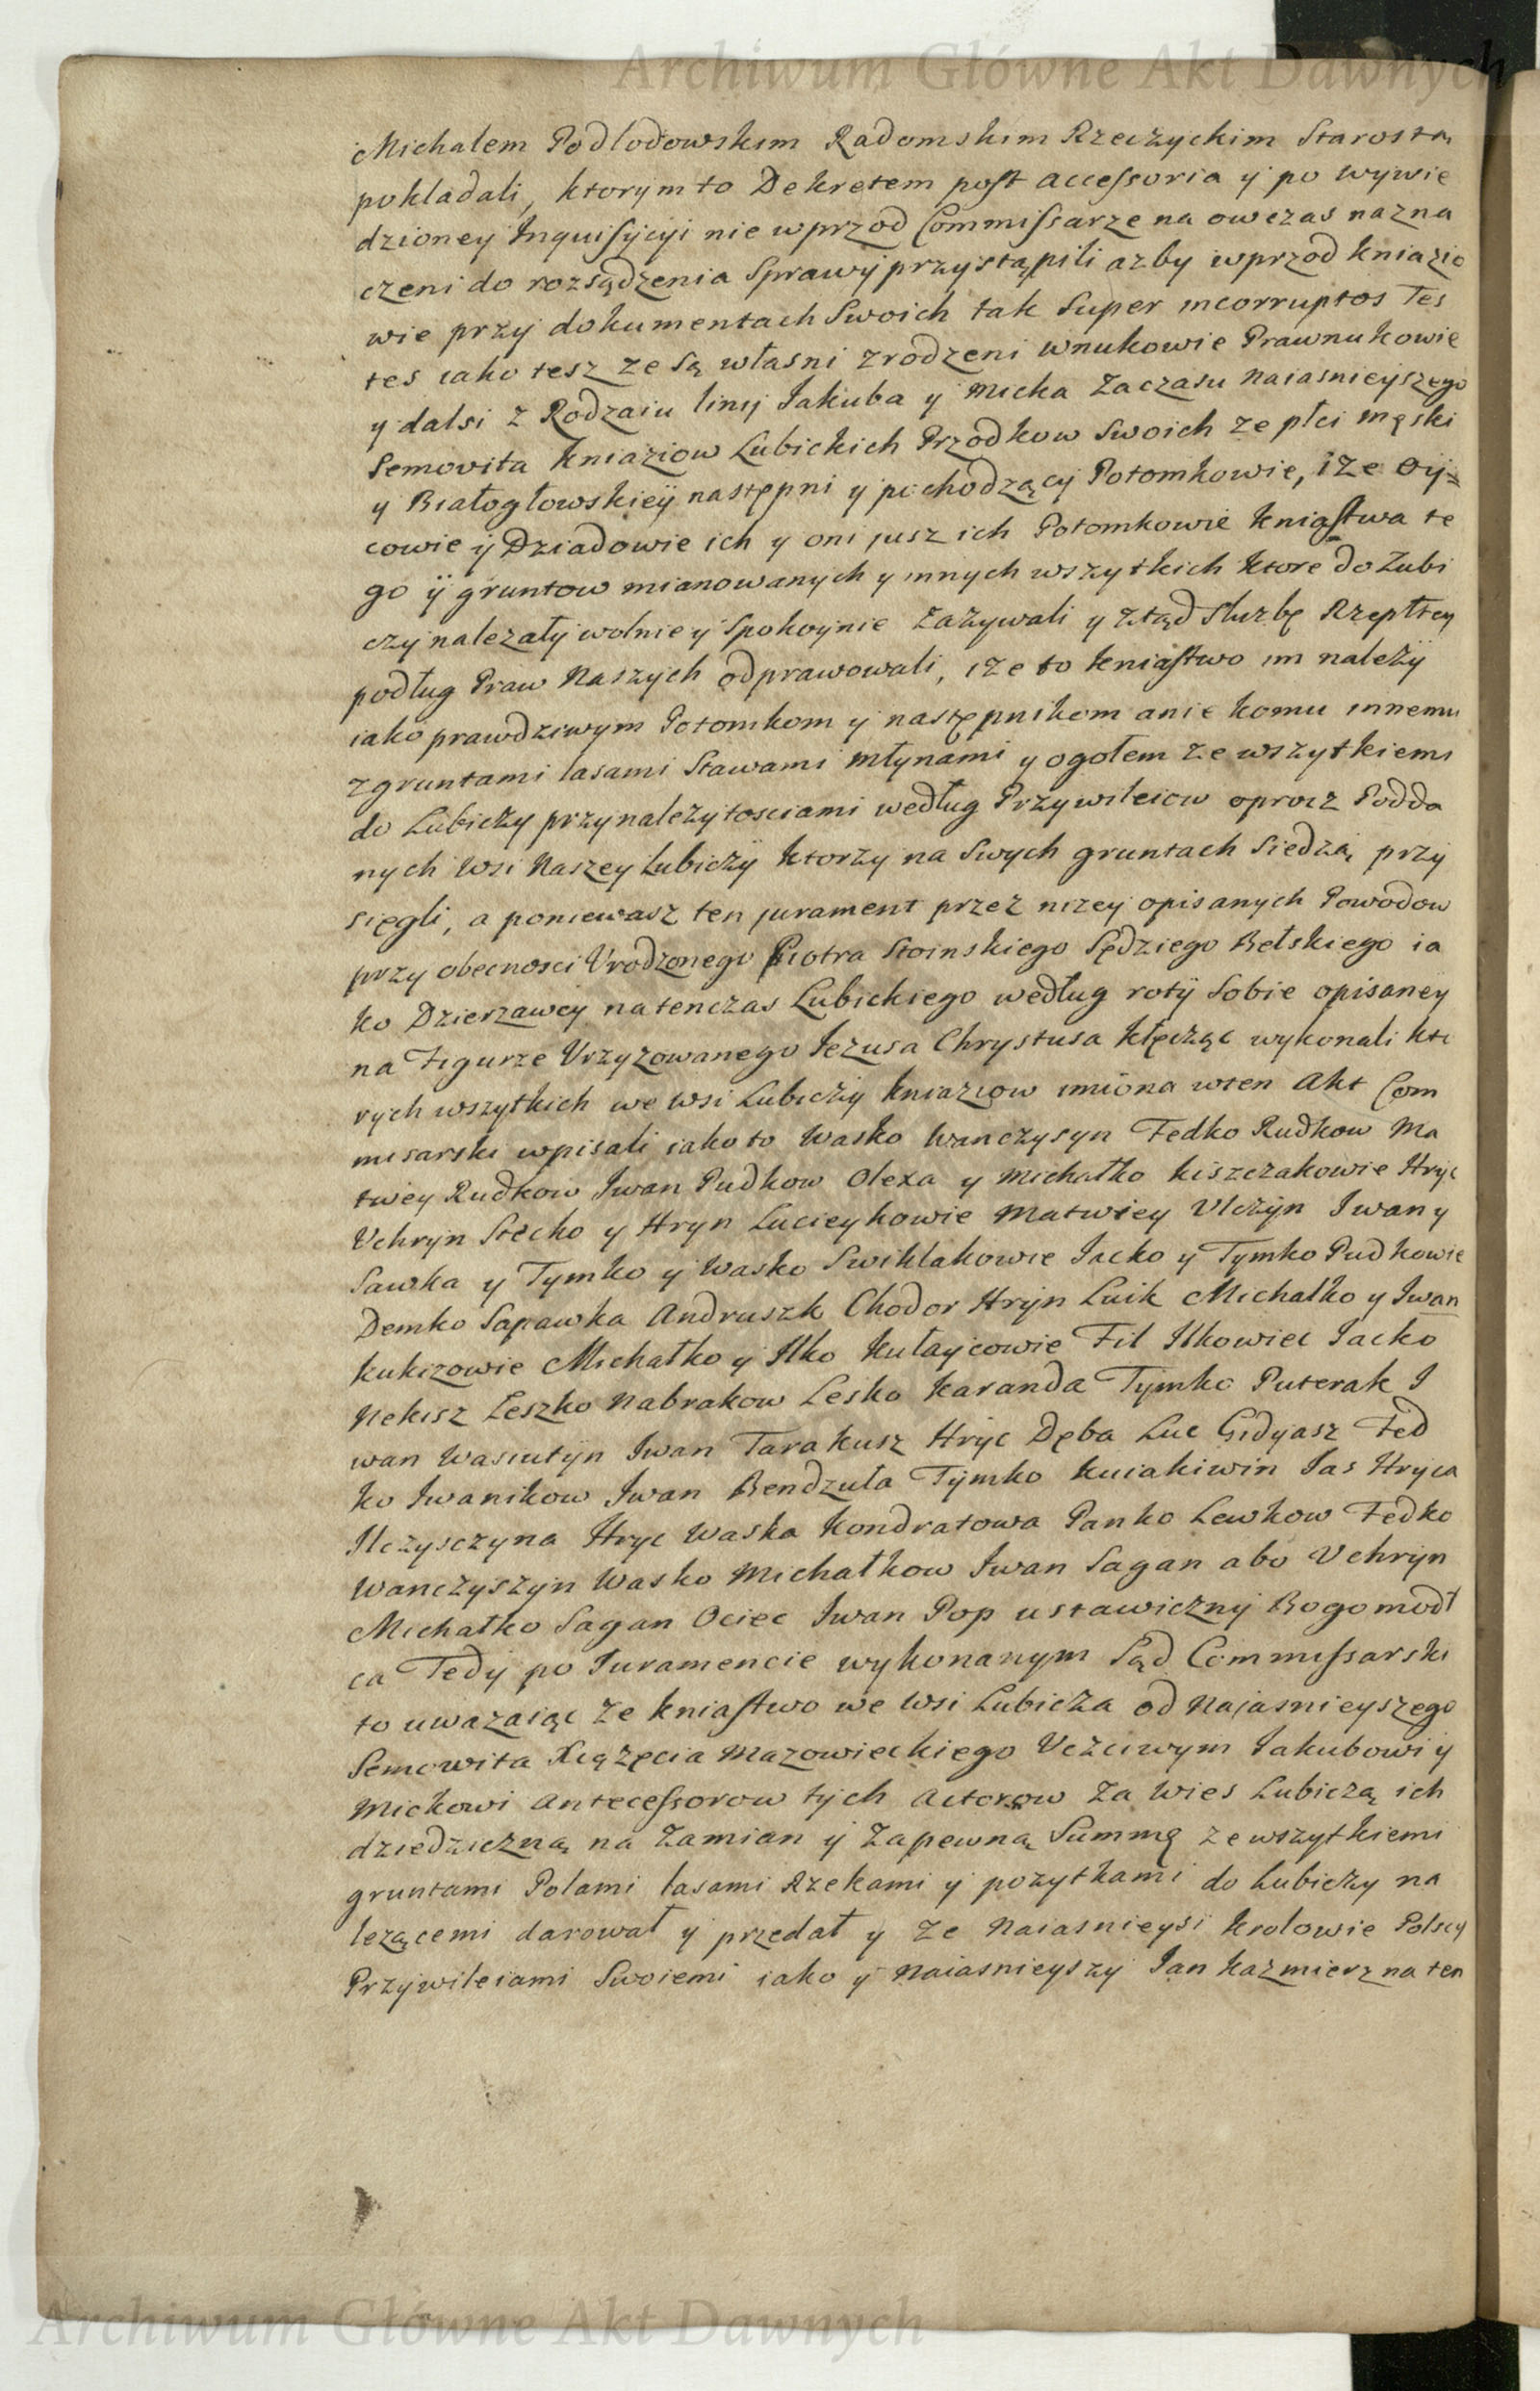 Archiwum Główne Akt Dawnych
Michalem Podlodowskim Radomskim Rzeczyckim Starostą
pokladali, ktorym to Dekretem post accessoria y po wywie
dzioney Inquisycyi nie wprzod Commissarze na owczas nazna
czeni do rozsądzenia Sprawy przystąpili azby wprzod kniazio
wie przy dokumentach Swoich tak Super incorruptos Tes
tes iako tesz ze są własni zrodzeni wnukowie Prawnukowie
y dalsi z Rodzaiu linij Jakuba y Micka Zaczasu Naiasnieyszego
Semovita Kniaziow Lubickich Przodkow Swoich ze płci męski
y Białogłowskieÿ następni y pochodzący Potomkowie, ize Oy=
cowie ÿ Dziadowie ich y oni jusz ich Potomkowie kniastwa te
go ÿ gruntow mianowanych y innych wszytkich ktore do Lubi
czy należały wolnie y Spokoynie Zażywali y ztąd Służbę Rzepltey
podług Praw Naszych odprawowali, ize to kniastwo im należÿ
iako prawdziwym Potomkom y następnikom anie komu innemu
z gruntami lasami Stawami młynami y ogołem ze wszytkiemi
do Lubiczy przynależytosciami według Przywileiow oprocz Podda
nych Wsi Naszey Lubiczÿ ktorzy na Swych gruntach Siedzą, przy
sięgli, a poniewasz ten jurament przez nizey opisanych Powodow
przy obecnosci Urodzonego Piotra Stoinskiego Sędziego Bełskiego ia
ko Dzierzawcy natenczas Lubickiego według rotÿ Sobie opisaney
na Figurze Vrzyzowanego Jezusa Chrystusa klęcząc wykonali kto
rych wszytkich we wsi Lubiczÿ kniaziow imiona wten Akt Com
misarski wpisali iako to Wasko Iwanczysyn Fedko Rudkow Ma
twey Rudkow Iwan Pudkow Olexa y Michałko Kiszczakowie Hryc
Vchryn Stecko y Hryn Lucieykowie Matwiey Vlczyn Iwan y
Sawka y Tymko y Wasko Swiklakowie Jacko y Tymko Pudkowie
Demko Sapawka Andruszk Chodor Hryn Luik Michalko y Iwan
Kukizowie Michałko y Ilko Kułaycowie Fil Ilkowiec Jacko
Nekisz Leszko Nabrakow Lesko Karanda Tymko Puterak I
wan Wasiutyn Iwan Tarakusz Hryc Dęba Luc Gidyasz Fed
ko Iwanikow Iwan Bendzuła Tymko Kuiakiwin Jas Hryca
Ilczysczyna Hryc Waska Kondratowa Panko Lewkow Fedko
Wanczyszyn Wasko Michałkow Iwan Sagan abo Vchryn
Michałko Sagan Ociec Iwan Pop ustawiczny Bogomodl
ca Tedy po Juramencie wykonanym Sąd Commissarski
to uwazaiąc ze kniastwo we wsi Lubicza od Najasnieyszego
Semowita Xiązęcia Mazowieckiego Vczciwym Jakubowi y
Mickowi Antecessorow tych Actorow Za wies Lubiczą ich
dziedziczną na Zamian y Zapewną Summę ze wszytkiemi
gruntami Polami lasami Rzekami y pozytkami do Lubiczy na
lezącemi darował y przedał y ze Naiasnieysi Krolowie Polscy
Przywileiami Swoiemi iako y Naiasnieyszy Jan Kazmierz na ten
Archiwum Główne Akt Dawnych